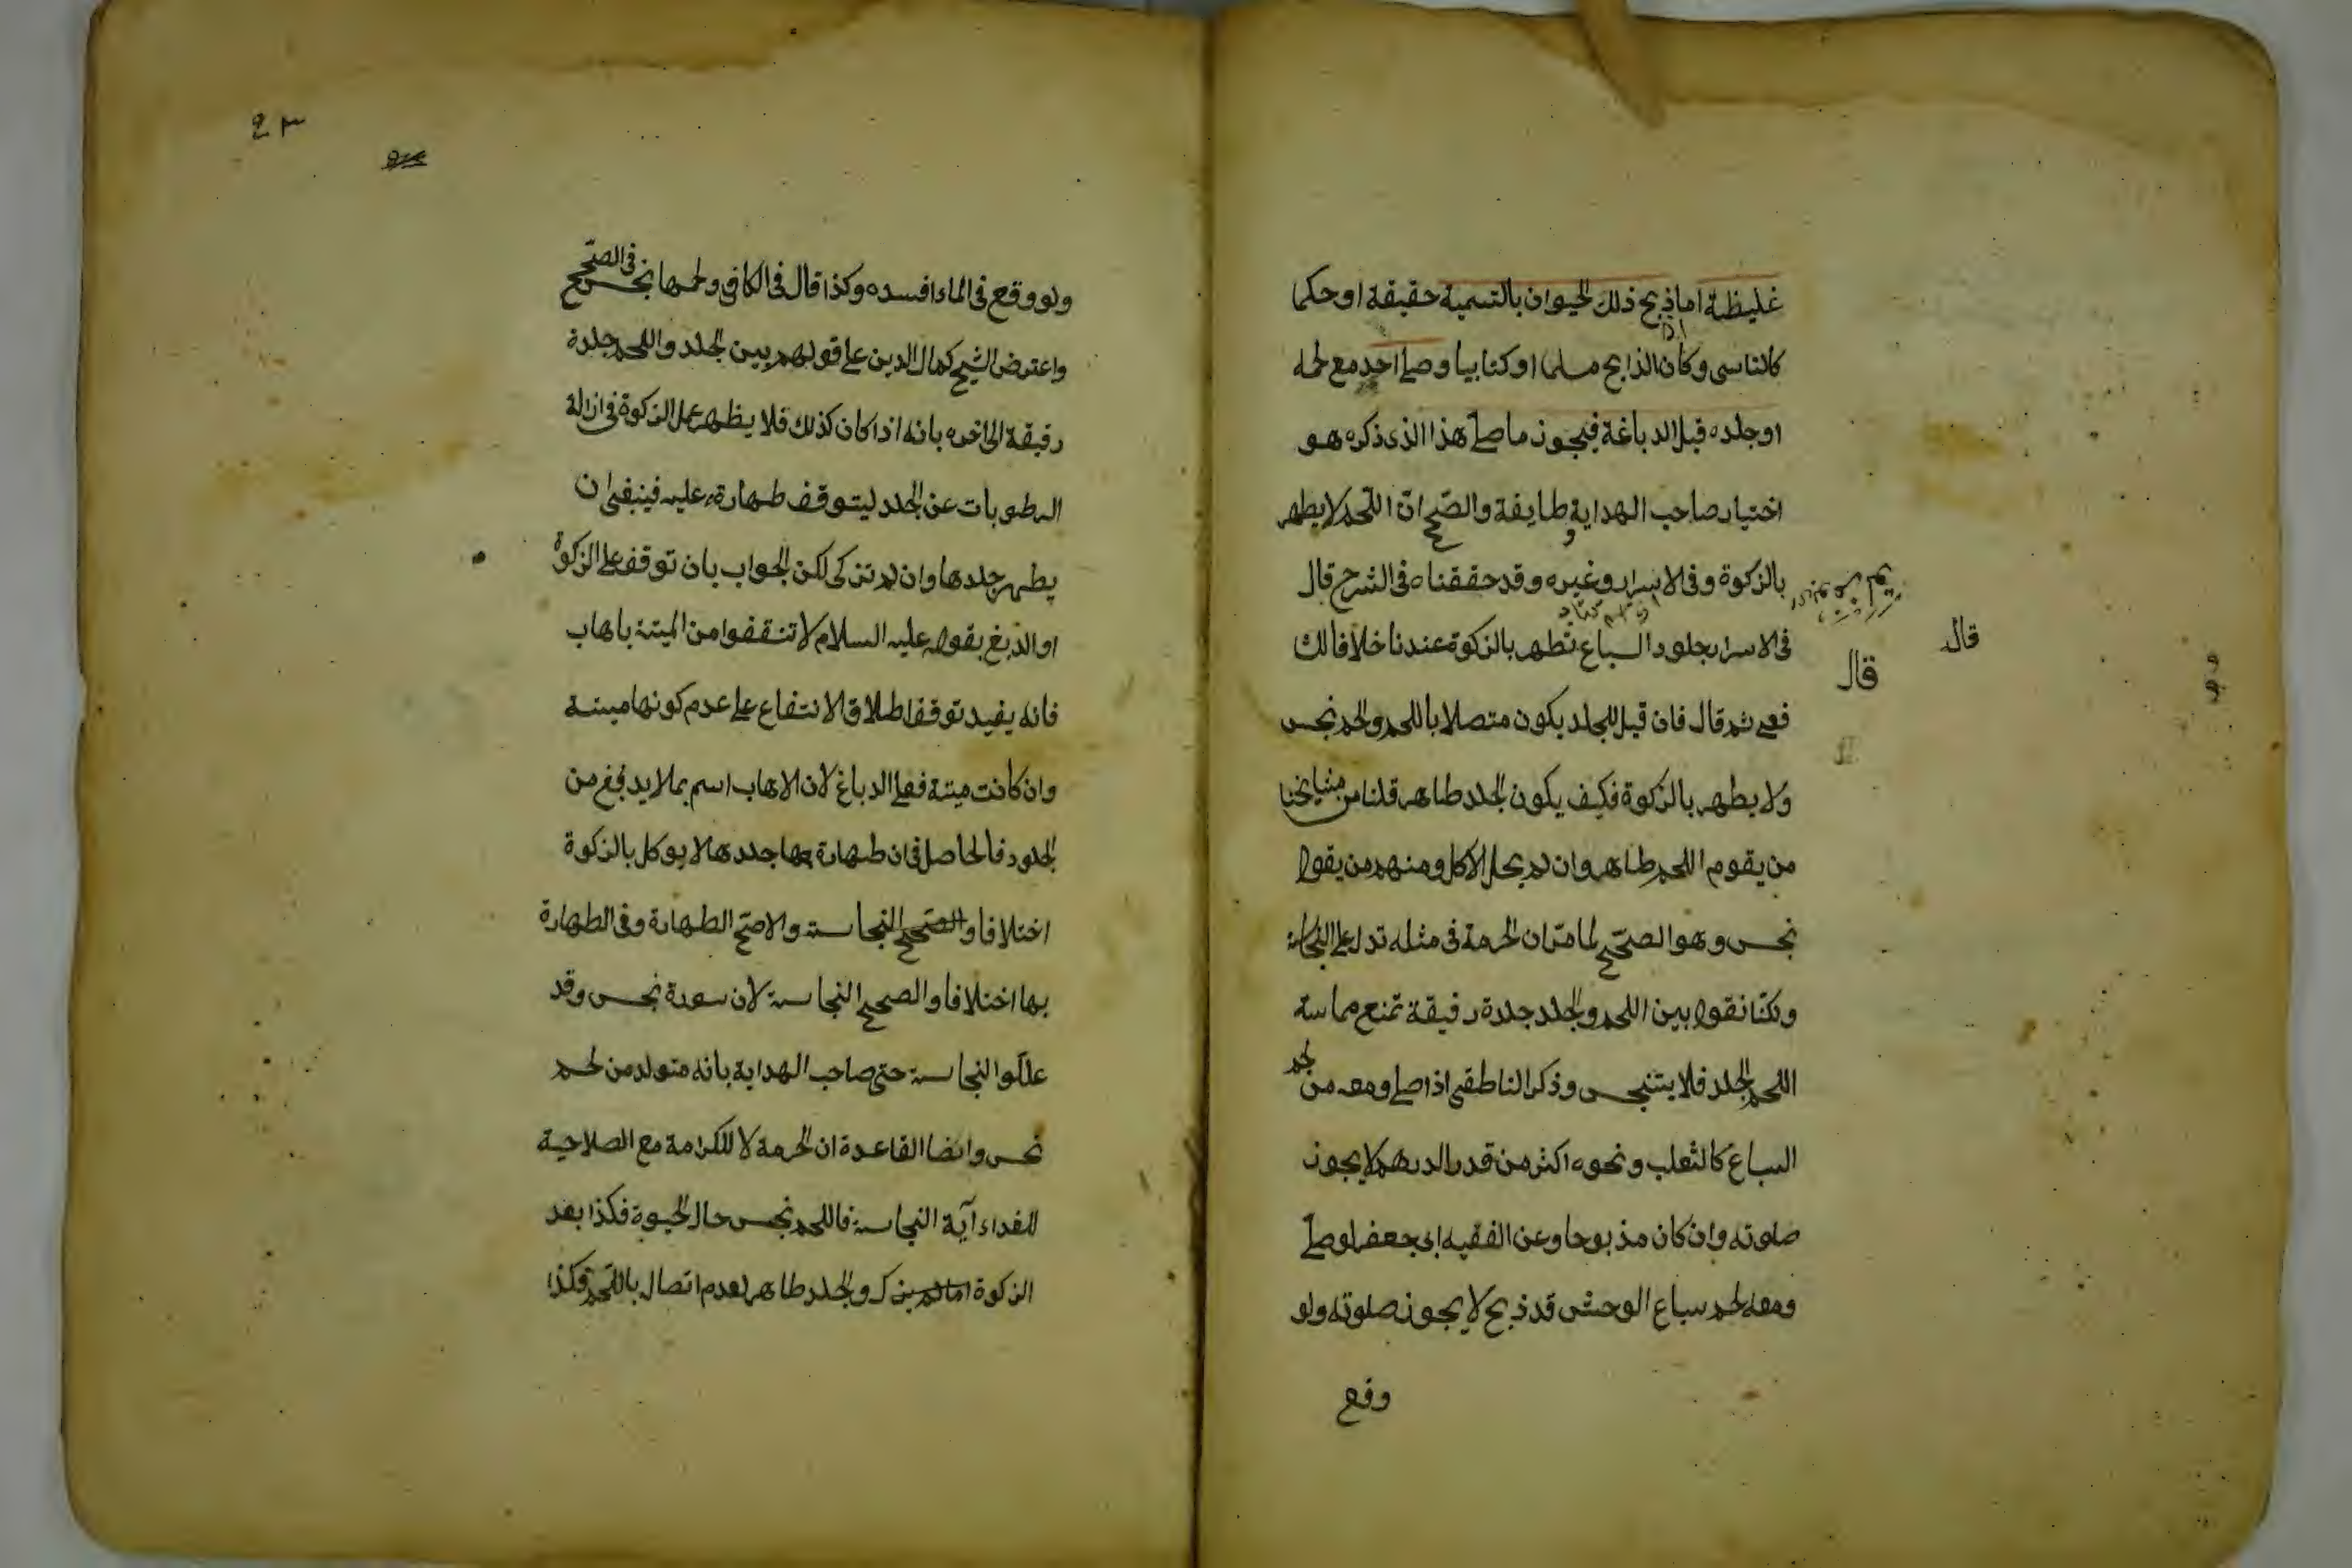 غليظة اما اذا ذبح ذلك الحيوان بالتسمية حقيقة او حكما
كالناسى وكان الذابح مسلما او كتابيا وصلى احد مع لحمه
او جلده قبل الدباغة فيجوز ما صلى هذا الذى ذكره هو
اختيار صاحب الهداية وطايفة والصحيح ان اللحم لا يطهر
بالزكوة وفى الاسرار وغيره وقد حققناه فى الشرح قال
فى الاسرار جلود السباع تطهر بالزكوة عندنا خلافا لك
قال
قال
فعى ثم قال فان قيل الجلد يكون متصلا باللحم والحم نجس
ولا يطهر بالزكوة فكيف يكون الجلد طاهر قلنا من مشايخنا
من يقوم اللحم طاهر وان لم يحل الاكل ومنهم من يقول
نجس وهو الصحيح لما مر ان الحرمة فى مثله تدل على النجاسة
ولكنا نقول بين اللحم والجلد جلدة رقيقة تمنع مماسة
اللحم الجلد فلا يتنجس وذكر الناطقى اذا صلى ومعه من لحم
السباع كالثعلب ونحوه اكثر من قدر الدرهم لا يجوز
صلوته وان كان مذبوحا وعن الفقيه ابى جعفر لو صلى
ومعه لحم سباع الوحش قد ذبح لا يجوز صلوته ولو
وقع
ولو وقع فى الماء افسده وكذا قال فى الكافى ولحمها نجس فى الصحيح
واعترض الشيخ كمال الدين على قولهم بين الجلد واللحم جلدة
رقيقة الى اخره بانه اذا كان كذلك فلا يظهر عمل الزكوة فى ازالة
الرطوبات عن الجلد ليتوقف طهارته عليه فينبغى ان
يطهر جلدها وان لم تزكى لكن الجواب بان توقف على الزكوة
او الدبغ بقوله عليه السلام لا تنتفعوا من الميتة باهاب
فانه يفيد توقف اطلاق الانتفاع على عدم كونها ميتة
وان كانت ميتة فعلى الدباغ لان الاهاب اسم بما لا يدبغ من
الجلود فالحاصل فى ان طهارة جلد ها لا يوكل بالزكوة
اختلافا والصحيح النجاسة والاصح الطهارة وفى الطهارة
بها اختلافا والصحيح النجاسة لان سورة نجس وقد
عللوا النجاسة حتى صاحب الهداية بانه متولد من لحم
نجس وايضا القاعدة ان الحرمة لا للكرامة مع الصلاحية
للغداء آية النجاسة فاللحم نجس حال الحيوة فكذا بعد
الزكوة والجلد طاهر لعدم اتصال باللحم وكذا